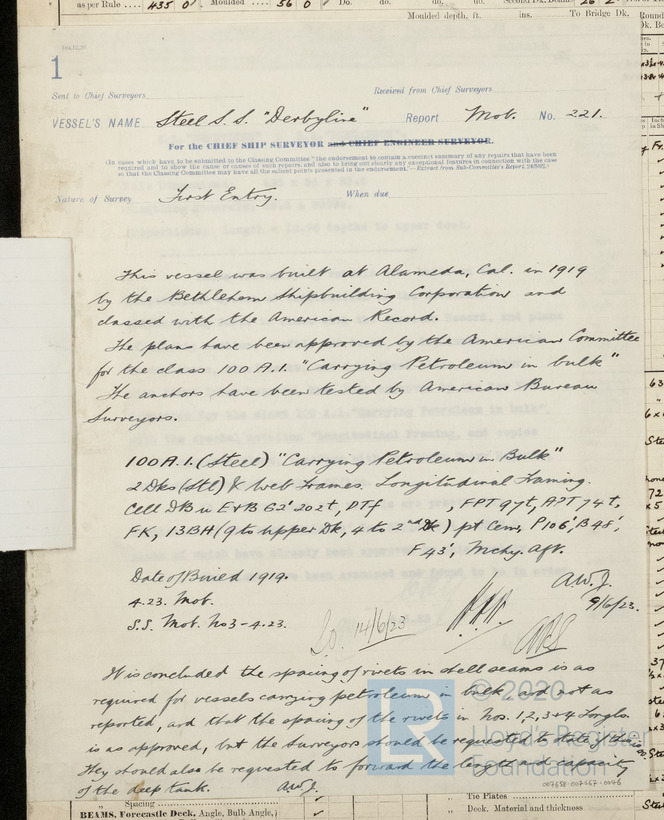 as per Rule 435 0 Moulded 56 0 Do. do. do. do. Second Dk. Beams 26 2
Moulded depth, ft. ins. To Bridge Dk. Round
1
Sent to Chief Surveyors Received from Chief Surveyors
VESSEL'S NAME Steel S.S. "Derbyline" Report Mob. No. 221.
For the CHIEF SHIP SURVEYOR and CHIEF ENGINEER SURVEYOR.
(In cases which have to be submitted to the Classing Committee "the endorsement to contain a succinct summary of any repairs that have been
required and to show the cause or causes of such repairs, and also to bring out clearly any exceptional features in connection with the case
so that the Classing Committee may have all the salient points presented in the endorsement."—Extract from Sub-Committee's Report
Nature of Survey First Entry. When due
This vessel was built at Alameda, Cal. in 1919
by the Bethlehem Shipbuilding Corporation and
classed with the American Record.
The plans have been approved by the American Committee
for the class 100 A.1. "Carrying Petroleum in bulk"
The anchors have been tested by American Bureau
Surveyors.
100 A.1. (Steel) "Carrying Petroleum in Bulk"
2 Dks (Stl) & Web Frames. Longitudinal Framing.
Cell DB u E&B 62' 202t, DTf , FPT 97t, APT 74t,
FK, 13BH (9 to Upper Dk, 4 to 2nd Dk) pt Cem, P106', B98',
F 43', Mchy. Aft.
Date of Build 1919.
4.23. Mob.
S.S. Mob. No3-4.23.
A.W.J.
9/6/23.
14/6/23
It is concluded the spacing of rivets in shell seams is as
required for vessels carrying petroleum in bulk and not as
reported, and that the spacing of the rivets in Nos. 1, 2, 3 & 4 Longls.
is as approved, but the Surveyors should be requested to state if this is so.
They should also be requested to forward the length and capacity
of the deep tank. A.W.J.
© 2020
Lloyd's Register
Foundation
Spacing
BEAMS, Forecastle Deck, Angle, Bulb Angle,
Tie Plates
Deck. Material and thickness